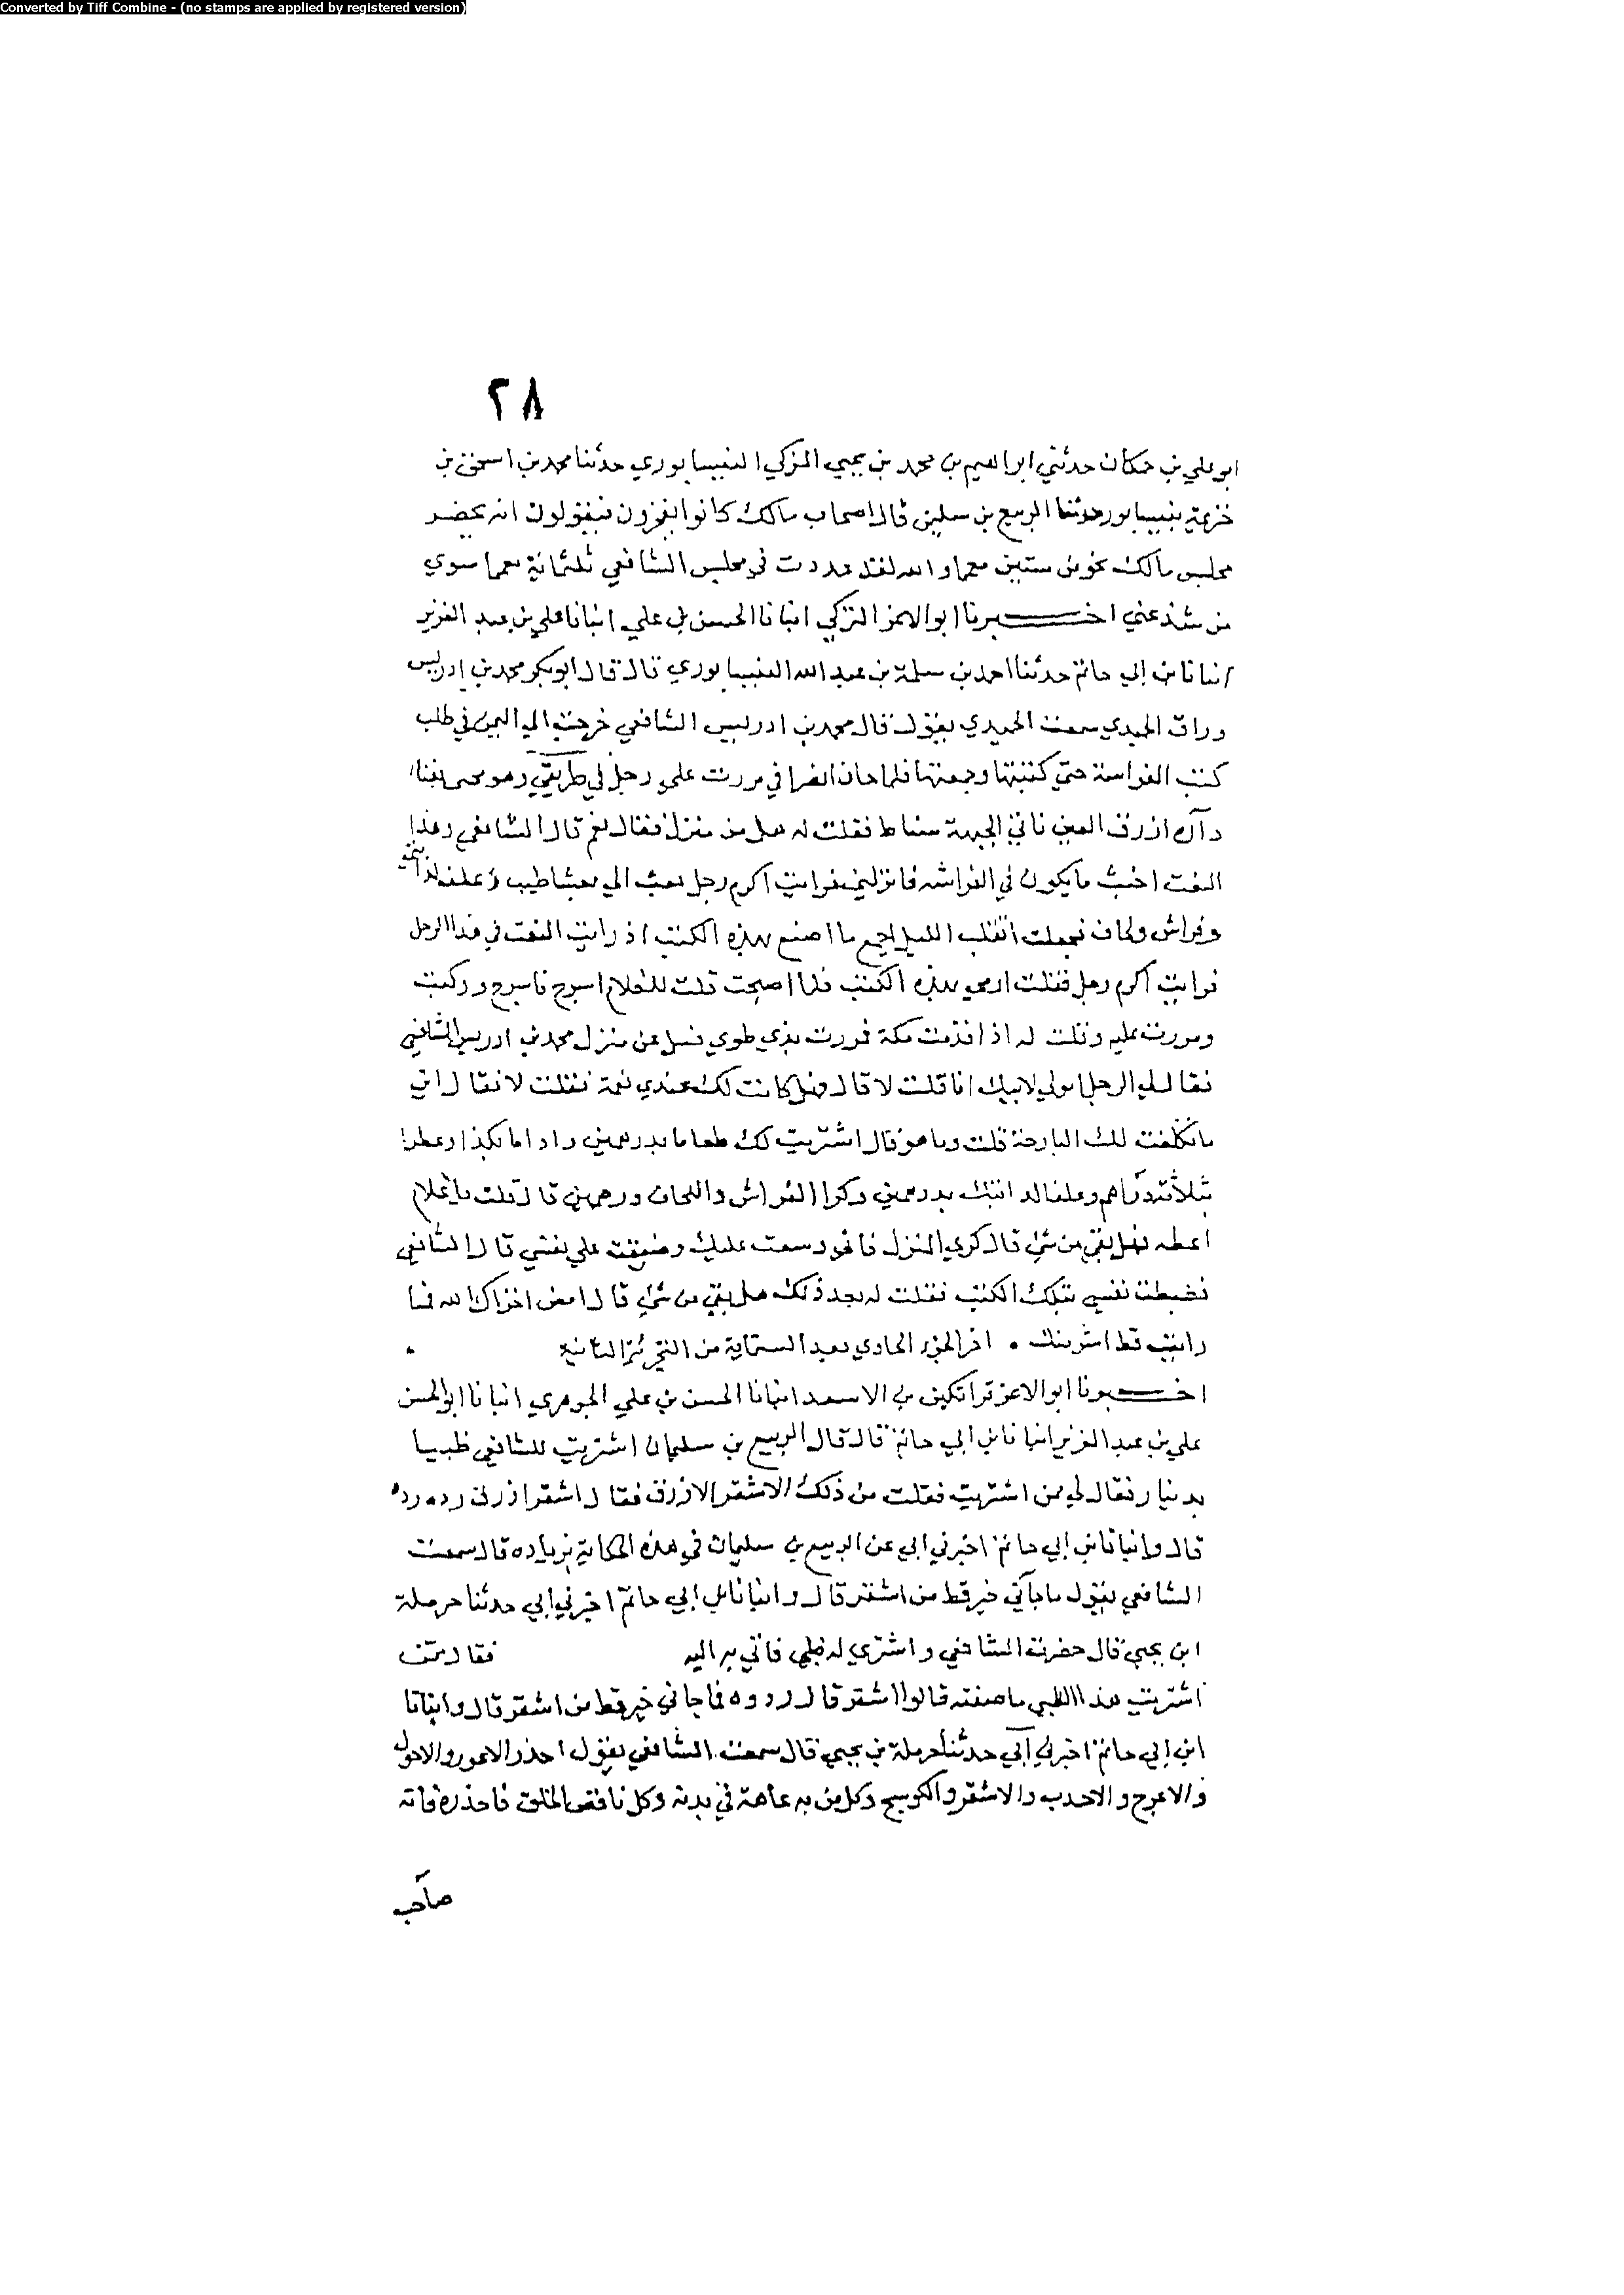 Converted by Tiff Combine - (no stamps are applied by registered version)
٢٨
ابو علي بن حمكان حدثني ابراهيم بن محمد بن يحيي المزكي النيسابوري حدثنا محمد بن اسحق بن
خزيمة بنيسابور حدثنا الربيع بن سليمن قال اصحاب مالك كانوا يفخرون فيقولون انه يحضر
مجلس مالك نحو من ستين معمما والله لقد عددت في مجلس الشافعي ثلثمائة معمما سوي
من شذ عني اخبرنا ابو الاعز التركي انبانا الحسن بن علي انبانا علي بن عبد العزيز
انبانا بن ابي حاتم حدثنا احمد بن سلمة بن عبد الله النيسابوري قال قال ابو بكر محمد بن ادريس
وراق الحميدي سمعت الحميدي يقول قال محمد بن ادريس الشافعي خرجت الي اليمن في طلب
كتب الفراسة حتي كتبتها وجمعتها فلما حان انصرافي مررت علي رجل في طريقي وهو محتبى بفناء
داره ازرق العين ناتئ الجبهة سناط فقلت له هل من منزل فقال نعم قال الشافعي وهذا
النعت اخبث ما يكون في الفراسه فانزلني فرايت اكرم رجل بعث الي بعشا طيب وعلف لدابتي
وفراش ولحاف فجعلت اتقلب الليل اجمع ما اصنع بهذه الكتب اذ رايت النعت في هذا الرجل
فرايت اكرم رجل فقلت ارمي بهذه الكتب فلما اصبحت قلت للغلام اسرج فاسرج وركبت
ومررت عليه وقلت له اذا قدمت مكة فمررت بذي طوي فسل عن منزل محمد بن ادريس الشافعي
فقال لي الرجل امولي لابيك انا قلت لا قال فهل كانت لك عندي نعمة فقلت لا فقال اين
ما تكلفت لك البارحة قلت وما هو قال اشتريت لك طعاما بدرهمين واداما بكذا وعطرا
بثلاثة دراهم وعلفا لدابتك بدرهمين وكرا الفراش واللحاف درهمين قال قلت يا غلام
اعطه فهل بقي من شئ قال كري المنزل فاني وسعت عليك وضيقت علي نفسي قال الشافعي
فغبطت نفسي بتلك الكتب فقلت له بعد ذلك هل بقي من شئ قال امض اخزاك الله فما
رايت قط اشر منك • اخر الجزء الحادي بعد الستماية من النجزئة الثانية •
اخبرنا ابو الاعز قراتكين بن الاسعد انبانا الحسن بن علي الجوهري انبانا ابو الحسن
علي بن عبد العزيز انبانا بن ابي حاتم قال قال الربيع بن سليمان اشتريت للشافعي طيبا
بدينار فقال لي ممن اشتريت فقلت من ذلك الاشقر الازرق فقال اشقر ازرق رده رده
قال وانبانا بن ابي حاتم اخبرني ابي عن الربيع بن سليمان في هذه الحكاية بزياده قال سمعت
الشافعي يقول ما جآني خير قط من اشقر قال وانبانا بن ابي حاتم اخبرني ابي حدثنا حرملة
ابن يحيي قال حضرت الشافعي واشتري له طيبا فاتي به اليه فقال ممن
اشتريت هذا الطيب ما صفته قالوا اشقر قال ردوه فما جاني خير قط من اشقر قال وانبانا
ابن ابي حاتم اخبرني ابي حدثنا حرملة بن يحيي قال سمعت الشافعي يقول احذر الاعور والاحول
والاعرج والاحدب والاشقر والكوسج وكل من به عاهة في بدنه وكل ناقص الخلق فاحذره فانه
صاحب